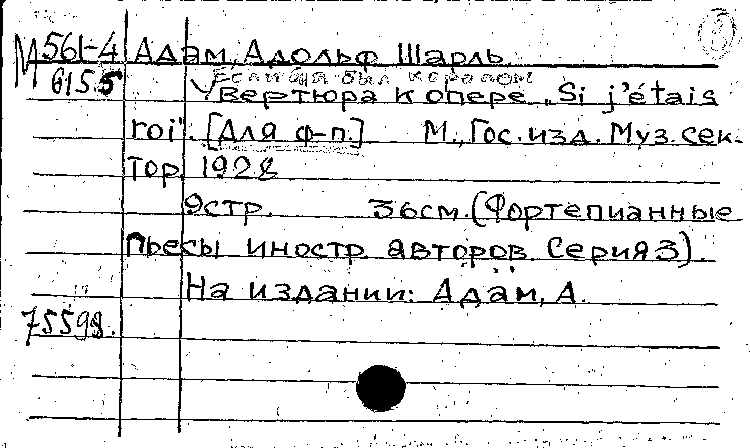 М 561-4 Адам, Адольф Шарль
615 5 Если бы я был королем
Увертюра к опере "Si j'étais
roi". [Для ф-п.] М., Гос. изд. Муз. сек-
тор, 1928
9стр. 36см. (Фортепианные
пьесы иностр. авторов. Серия 3).
На издании: Адам, А.
75598.